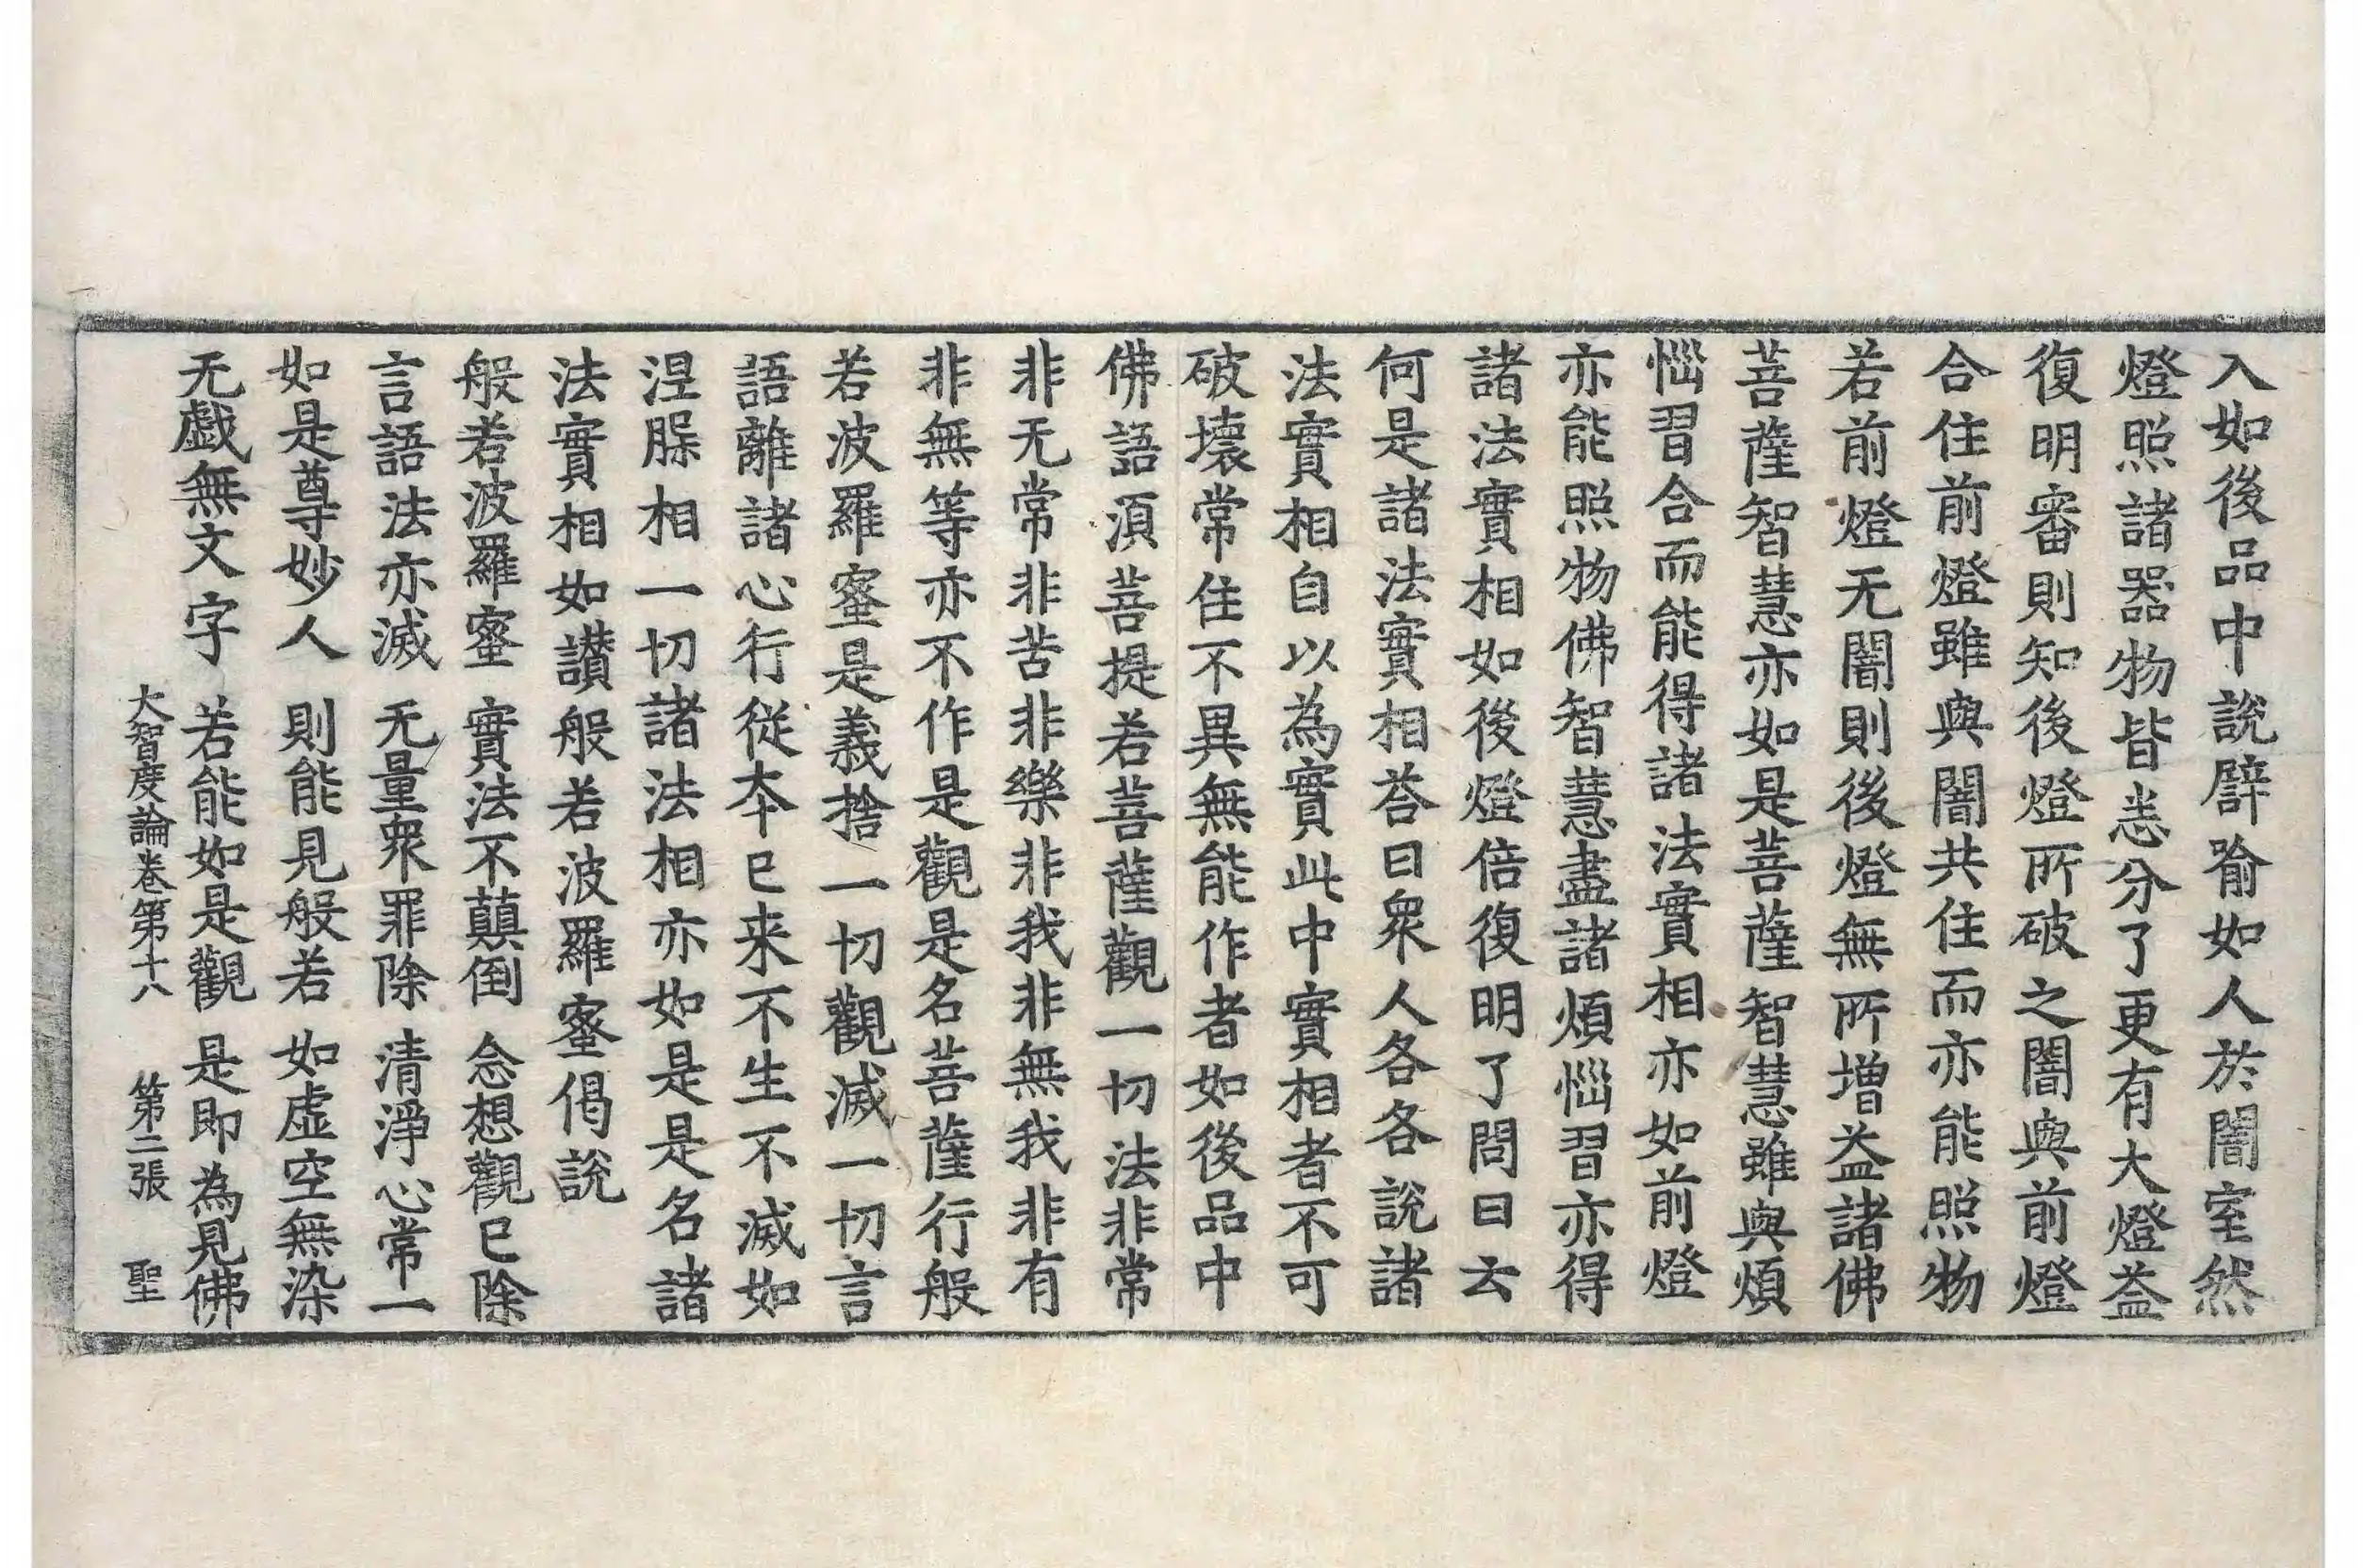 入如後品中說譬喻如人於闇室然
燈照諸器物皆悉分了更有大燈益
復明審則知後燈所破之闇與前燈
合住前燈雖與闇共住而亦能照物
若前燈无闇則後燈無所增益諸佛
菩薩智慧亦如是菩薩智慧雖與煩
惱習合而能得諸法實相亦如前燈
亦能照物佛智慧盡諸煩惱習亦得
諸法實相如後燈倍復明了問曰云
何是諸法實相荅曰衆人各各說諸
法實相自以為實此中實相者不可
破壞常住不異無能作者如後品中
佛語湏菩提若菩薩觀一切法非常
非无常非苦非樂非我非無我非有
非無等亦不作是觀是名菩薩行般
若波羅蜜是義捨一切觀滅一切言
語離諸心行從夲已来不生不滅如
涅槃相一切諸法相亦如是是名諸
法實相如讃般若波羅蜜偈說
般若波羅蜜 實法不顛倒 念想觀已除
言語法亦滅 无量衆罪除 清淨心常一
如是尊妙人 則能見般若 如虛空無染
无戲無文字 若能如是觀 是即為見佛
大智度論卷第十八 第二張 聖